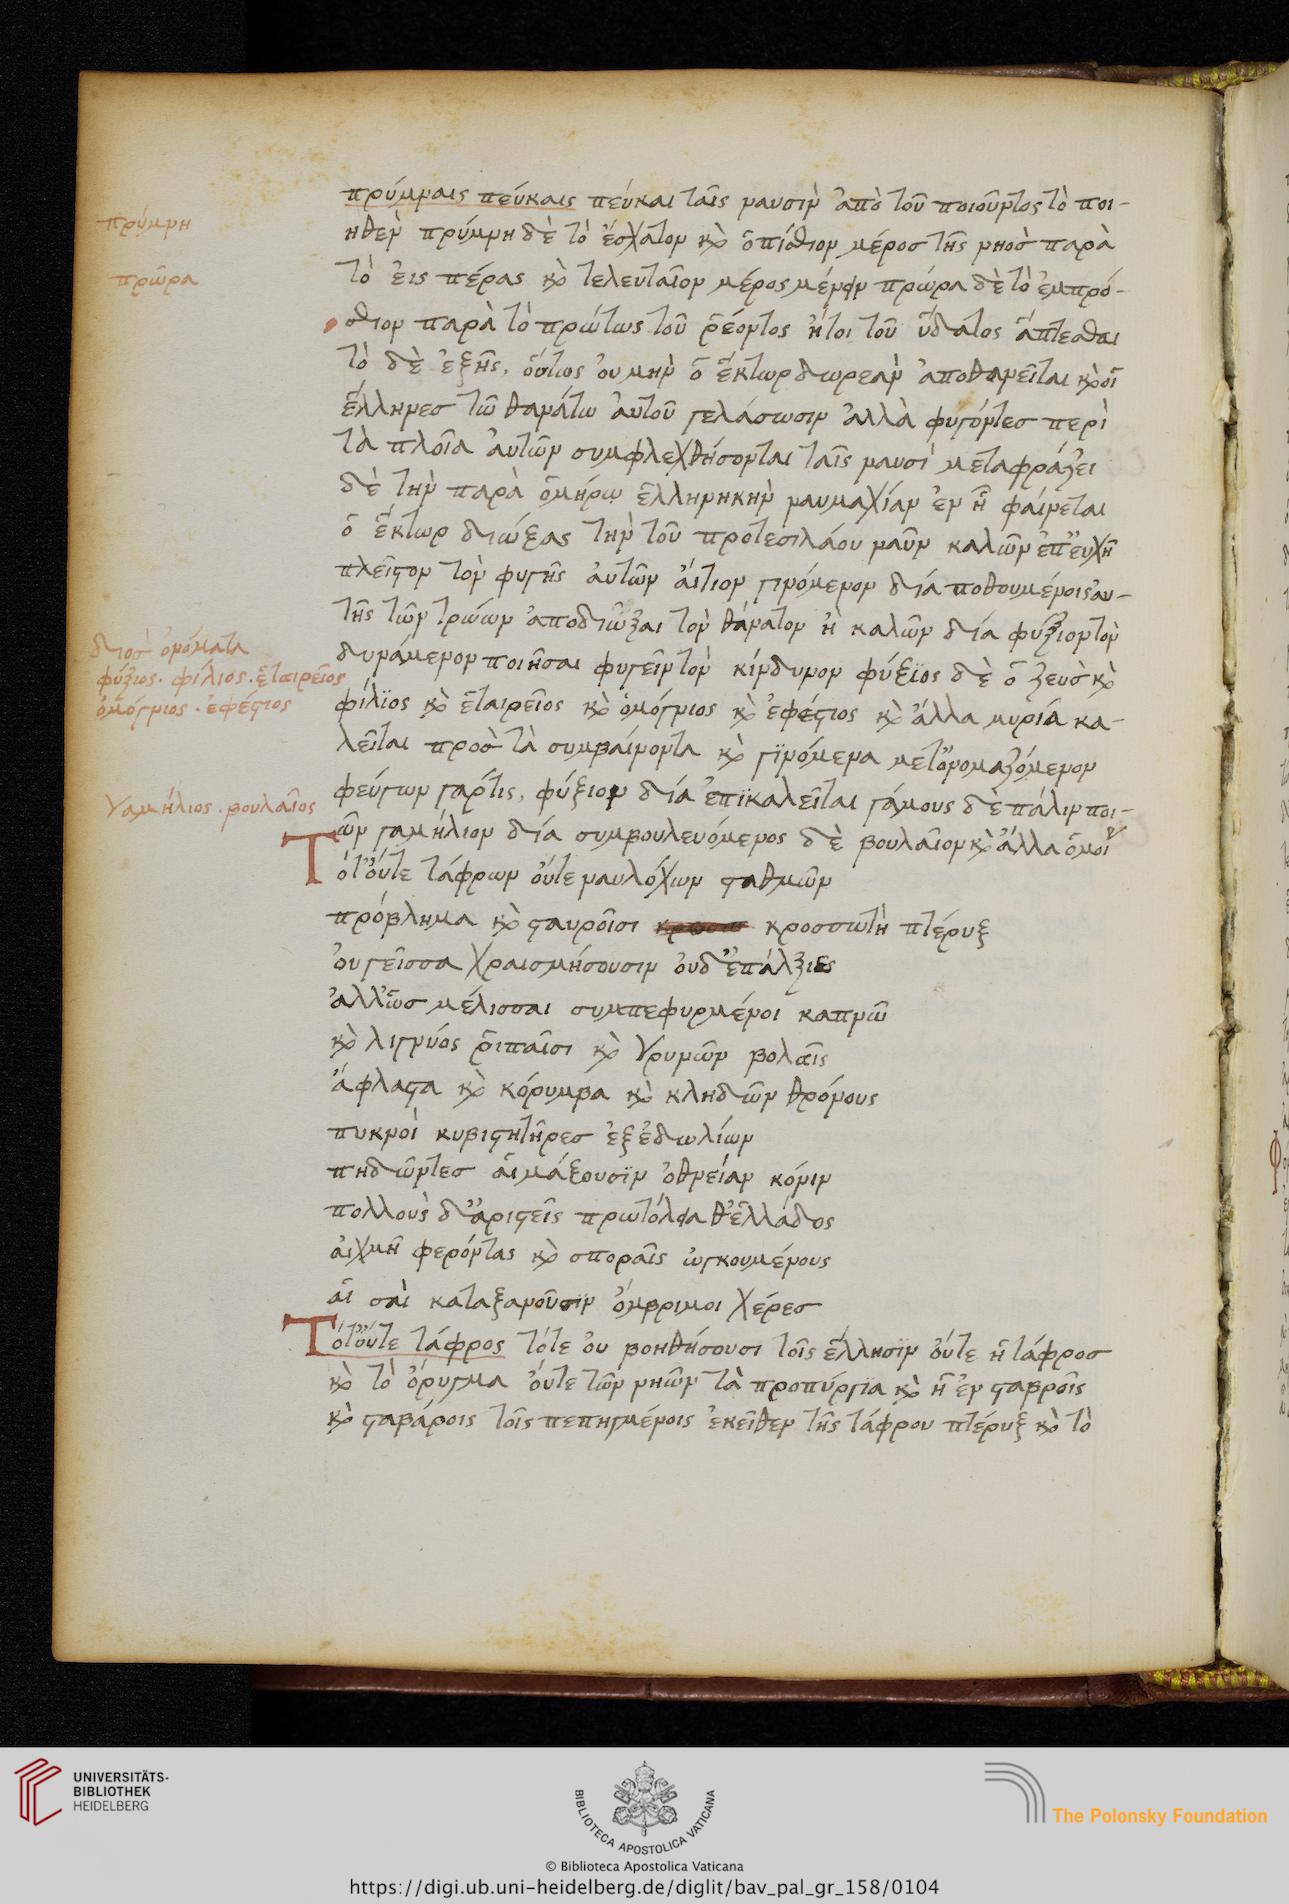 πρύμναις πεύκαις πεύκαι ταῖς ναυσὶν ἀπὸ τοῦ ποιοῦντος τὸ ποι-
πρύμνη
ηθὲν πρύμνη δὲ τὸ ἔσχατον κὸ ὁπίσθιον μέροσ τῆς νηοσ παρὰ
πρῶρα
τὸ ἐις πέρας κὸ τελευταῖον μέρος μένειν πρώρα δὲ τὸ ἐμπρό-
σθιον παρὰ τὸ πρώτως τοῦ ῥέοντος ἤτοι τοῦ ὕδατος ἅπτεσθαι
τὸ δὲ ἑξῆς, οὕτως ου μὴν ὁ ἕκτωρ δωρεὰν ἀποθανεῖται κὸ οἱ
ἕλληνεσ τῶ θανάτω ἀυτοῦ γελάσωσιν ἀλλὰ φυγόντεσ περὶ
τὰ πλοῖα ἀυτῶν συμφλεχθήσονται ταῖς ναυσὶ μεταφράζει
δὲ τὴν παρὰ ὁμήρω ἑλληνηκὴν ναυμαχίαν ἐν ἧ φαίνεται
ὁ ἕκτωρ διώξας τὴν τοῦ προτεσιλάου ναῦν καλῶν ἐπ' ἐυχῆ
πλεῖστον τὸν φυγῆς ἀυτῶν ἄιτιον γινόμενον δία ποθουμένοις ἀυ-
τῆς τῶν τρώων ἀποδιῶξαι τὸν θάνατον ἢ καλῶν δία φύξιον τὸν
διοσ ὀνόματα
δυνάμενον ποιῆσαι φυγεῖν τὸν κίνδυνον φύξϊος δὲ ὁ ζεὺσ κὸ
φύξιος. φίλιος. ἑταιρεῖος
φίλϊος κὸ ἑταιρεῖος κὸ ὁμόγνιος κὸ ἐφέστιος κὸ ἄλλα μυρία κα-
ὁμόγνιος. ἐφέστιος
λεῖται προσ τὰ συμβαίνοντα κὸ γϊνόμενα μετονομαζόμενον
φεύγων γάρτις, φύξιον δία ἐπϊκαλεῖται γάμους δὲ πάλιν ποι-
γαμήλιος. βουλαῖος
ῶν γαμήλιον δία συμβουλευόμενος δὲ βουλαῖον κὸ ἄλλα ὁμοί
Τότ' ὄυτε τάφρων ὄυτε ναυλόχων σταθμῶν
πρόβλημα κὸ σταυροῖσι κροσσωτὴ πτέρυξ
ὀυ γεῖσσα χραισμήσουσιν ὀυδ' ἐπάλξιες
ἀλλ' ὡσ μέλισσαι συμπεφυρμένοι καπνῶ
κὸ λιγνύος ῥιπαῖσι κὸ γρυνῶν βολαῖς
ἄφλαστα κὸ κόρυμβα κὸ κληδῶν θρόνους
πυκνοὶ κυβιστητῆρεσ ἐξ ἑδωλίων
πηδῶντεσ αἱμάξουσϊν ὀθνείαν κόνιν
πολλοὺς δ' ἀριστεῖς πρωτόλεια θ' ἑλλάδος
ἀιχμῆ φερόντας κὸ σποραῖς ὠγκουμένους
αἱ σαὶ καταξανοῦσϊν ὄμβριμοι χέρεσ
Τότ' ὄυτε τάφρος τότε ὀυ βοηθήσουσι τοῖς ἕλλησϊν ὄυτε ἡ τάφροσ
κὸ τὸ ὄρυγμα ὄυτε τῶν νηῶν τὰ προπύργϊα κὸ ἡ ἐν σταβροῖς
κὸ σταβάροις τοῖς πεπηγμένοις ἐκεῖθεν τῆς τάφρου πτέρυξ κὸ τὸ
UNIVERSITÄTS-
BIBLIOTHEK
HEIDELBERG
BIBLIOTECA APOSTOLICA VATICANA
The Polonsky Foundation
© Biblioteca Apostolica Vaticana
https://digi.ub.uni-heidelberg.de/diglit/bav_pal_gr_158/0104